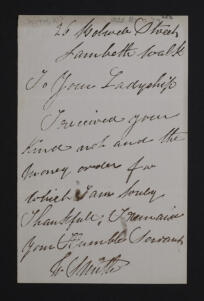 26 Holwell Street
Lambeth Walk
To Your Ladyship
I received your
Kind not and the
money order for
which I am truly
Thankful, I remain
your Humble Servant
W Smith